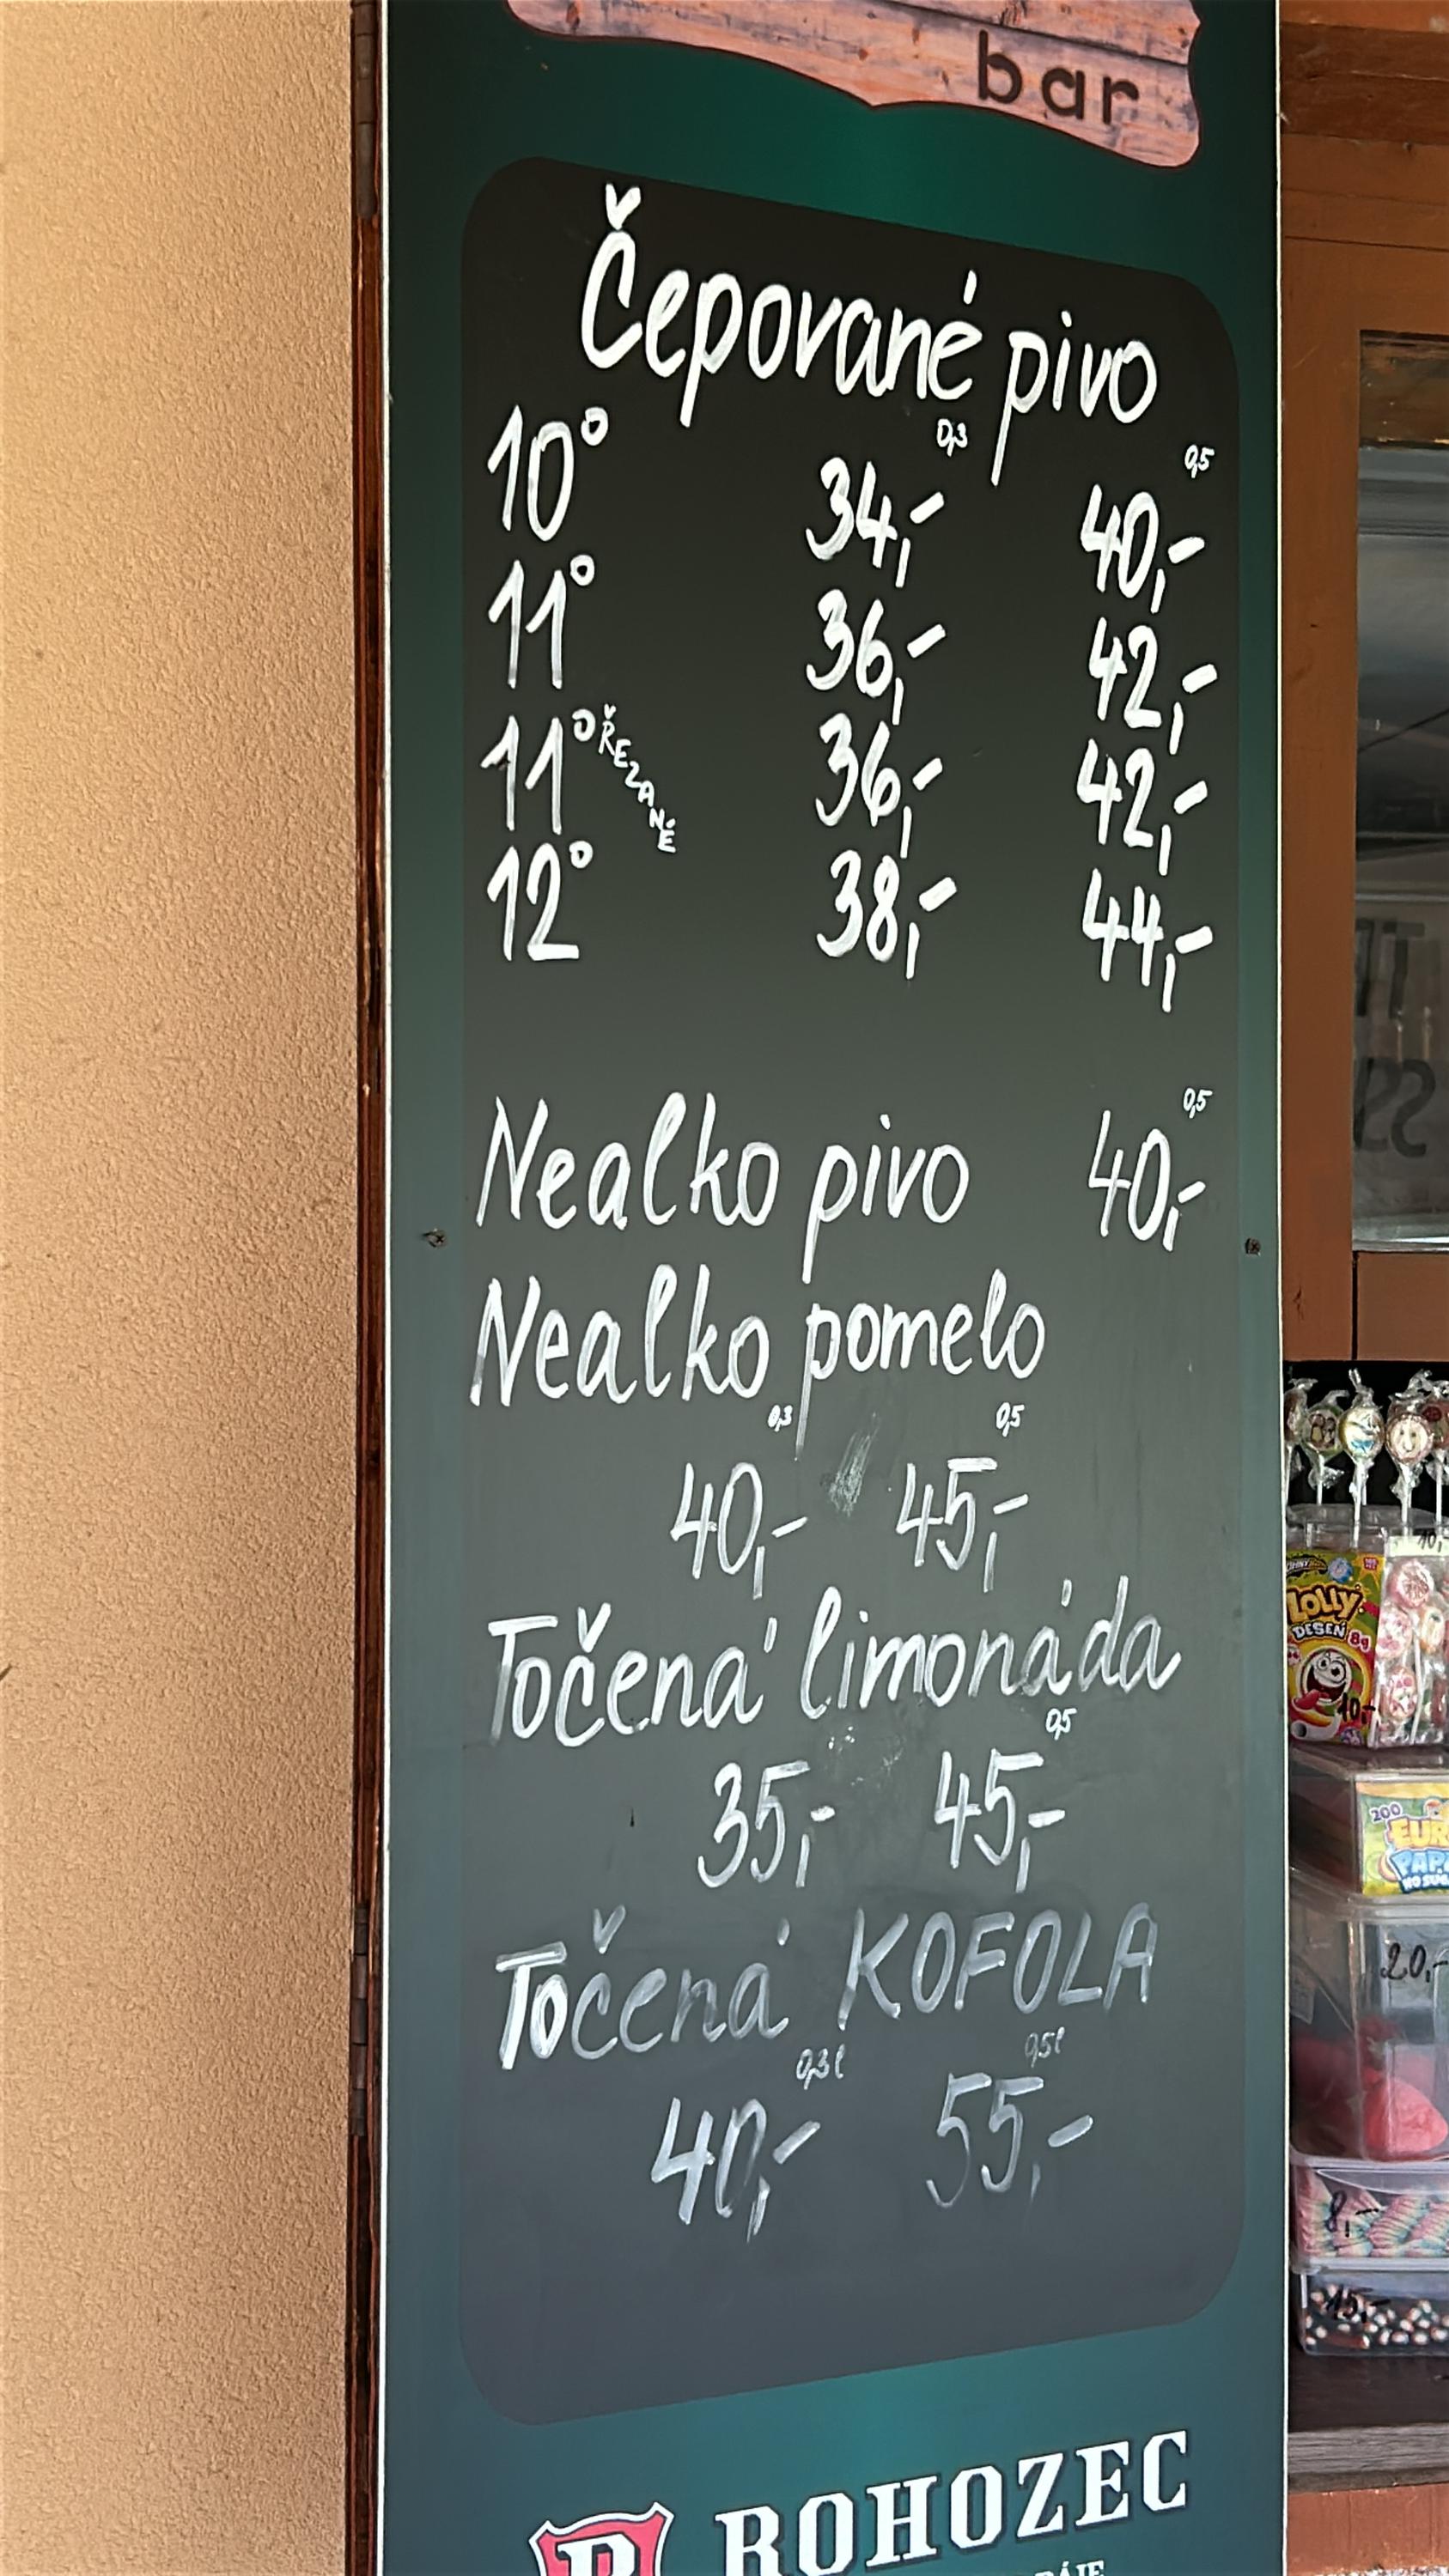 bar
Čepované pivo
0,3 0,5
10° 34,- 40,-
11° 36,- 42,-
11° ŘEZANÉ 36,- 42,-
12° 38,- 44,-
0,5
Nealko pivo 40,-
Nealko pomelo
0,3 0,5
40,- 45,-
Točená limonáda
0,5
35,- 45,-
Točená KOFOLA
0,3l 0,5l
40,- 55,-
ROHOZEC
10,-
LOLLY
DESEŇ 8g
10,-
200
20,-
8,-
15,-